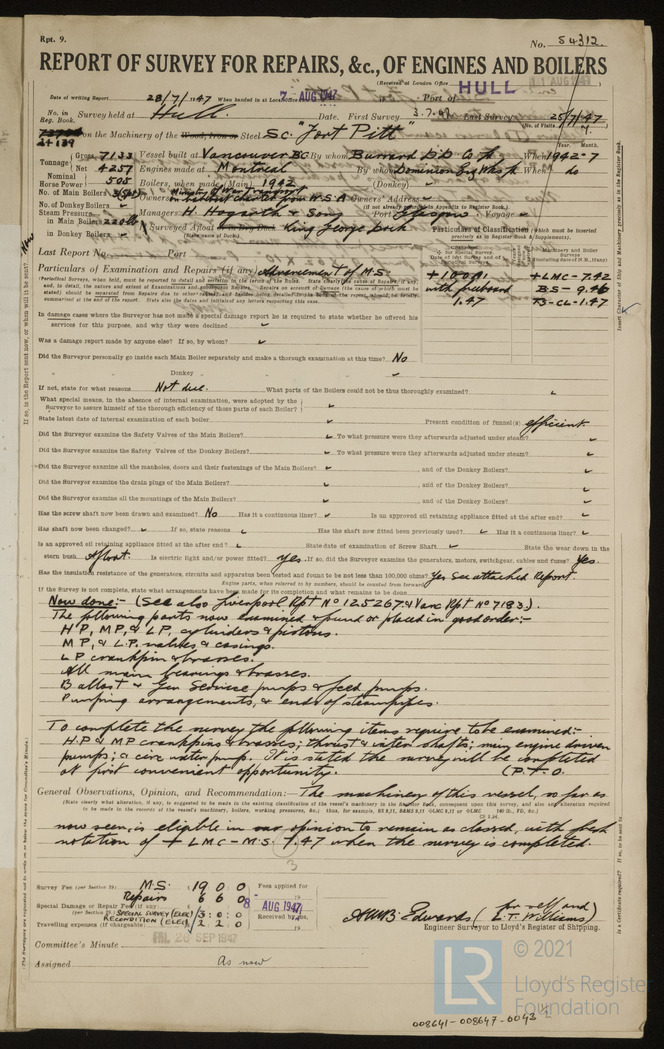 Rpt. 9.
No. 54312.
REPORT OF SURVEY FOR REPAIRS, &c., OF ENGINES AND BOILERS
(Received at London Office AUG 1947)
Date of writing Report 28/7/1947 When handed in at Local Office 7 AUG 1947 Port of HULL
No. in Reg. Book. Survey held at Hull. Date. First Survey 3.7.47 Last Survey 25/7/47
(No. of Visits 7.
24139 on the Machinery of the Wood, Iron or Steel S.C. "Fort Pitt"
Tonnage Gross 7133 Vessel built at Vancouver BC By whom Burrard D.D. Co When 1942-7
Net 4257 Engines made at Montreal By whom Dominion Eng Wks When do
Nominal Horse Power 505 Boilers, when made (Main) 1942 (Donkey)
No. of Main Boilers Owners Ministry of War Transport on bareboat charter from W.S.A Owners' Address
No. of Donkey Boilers (if not already recorded in Appendix to Register Book.)
Steam Pressure in Main Boilers 220 lb Managers H. Hogarth & Sons Port Glasgow Voyage
in Donkey Boilers Surveyed Afloat or in Dry Dock King George Dock
(State name of Dock.)
Particulars of Classification (which must be inserted precisely as in Register Book & Supplements).
Last Report No. Port
Particulars of Examination and Repairs (if any) Advancement of M.S.
+100A1 with freeboard 1.47
+LMC-7.42
BS-9.46
TS-CL-1.47
In damage cases where the Surveyor has not made a special damage report he is required to state whether he offered his
services for this purpose, and why they were declined
Was a damage report made by anyone else? If so, by whom?
Did the Surveyor personally go inside each Main Boiler separately and make a thorough examination at this time? No
Donkey
If not, state for what reasons Not due. What parts of the Boilers could not be thus thoroughly examined?
What special means, in the absence of internal examination, were adopted by the
Surveyor to assure himself of the thorough efficiency of those parts of each Boiler?
State latest date of internal examination of each boiler Present condition of funnel(s) efficient.
Did the Surveyor examine the Safety Valves of the Main Boilers? To what pressure were they afterwards adjusted under steam?
Did the Surveyor examine the Safety Valves of the Donkey Boilers? To what pressure were they afterwards adjusted under steam?
Did the Surveyor examine all the manholes, doors and their fastenings of the Main Boilers? and of the Donkey Boilers?
Did the Surveyor examine the drain plugs of the Main Boilers? and of the Donkey Boilers?
Did the Surveyor examine all the mountings of the Main Boilers? and of the Donkey Boilers?
Has the screw shaft now been drawn and examined? No Has it a continuous liner? Is an approved oil retaining appliance fitted at the after end?
Has shaft now been changed? If so, state reasons Has the shaft now fitted been previously used? Has it a continuous liner?
Is an approved oil retaining appliance fitted at the after end? State date of examination of Screw Shaft State the wear down in the
stern bush Afloat. Is electric light and/or power fitted? Yes. If so, did the Surveyor examine the generators, motors, switchgear, cables and fuses? Yes.
Has the insulation resistance of the generators, circuits and apparatus been tested and found to be not less than 100,000 ohms? Yes See attached Report.
If the Survey is not complete, state what arrangements have been made for its completion and what remains to be done
Now done:- (See also Liverpool Rpt No 125267 & Vanc Rpt No 7183.)
The following parts now examined & found or placed in good order:-
H.P, M.P, & L.P, cylinders & pistons.
M.P, & L.P. valves & casings.
L.P crankpin & brasses.
All main bearings & brasses.
Ballast & Gen Service pumps & feed pumps.
Pumping arrangements, & ends of steampipes.
To complete the survey the following items require to be examined:-
H.P & M.P crankpins & brasses; thrust & inter shafts; main engine driven
pumps; & circ water pump. It is stated the survey will be completed
at first convenient opportunity. (P.T.O.
General Observations, Opinion, and Recommendation:- The machinery of this vessel, so far as
(State clearly what alteration, if any, is suggested to be made in the existing classification of the vessel's machinery in the Register Book, consequent upon this survey, and also any alteration required
to be made in the records of the vessel's machinery, boilers, working pressures, &c.;
now seen, is eligible in our opinion to remain as classed, with fresh
notation of + LMC-M.S. 7.47 when the survey is completed.
3
Survey Fee (per Section 29) M.S. 19 0 0 Fees applied for
Repairs 6 6 0 8 AUG 1947
Special Damage or Repair Fee (if any)
(per Section 29.) SPECIAL SURVEY (ELEC) 3 : 0 : 0 Received by me,
RECONDITION (ELEC) 2 2 0
Travelling expenses (if chargeable)
A.W.B. Edwards (for self and L.T. Williams)
Engineer Surveyor to Lloyd's Register of Shipping.
Committee's Minute FRI. 26 SEP 1947
Assigned As now
© 2021
LR
Lloyd's Register
Foundation
008641-008647-0043